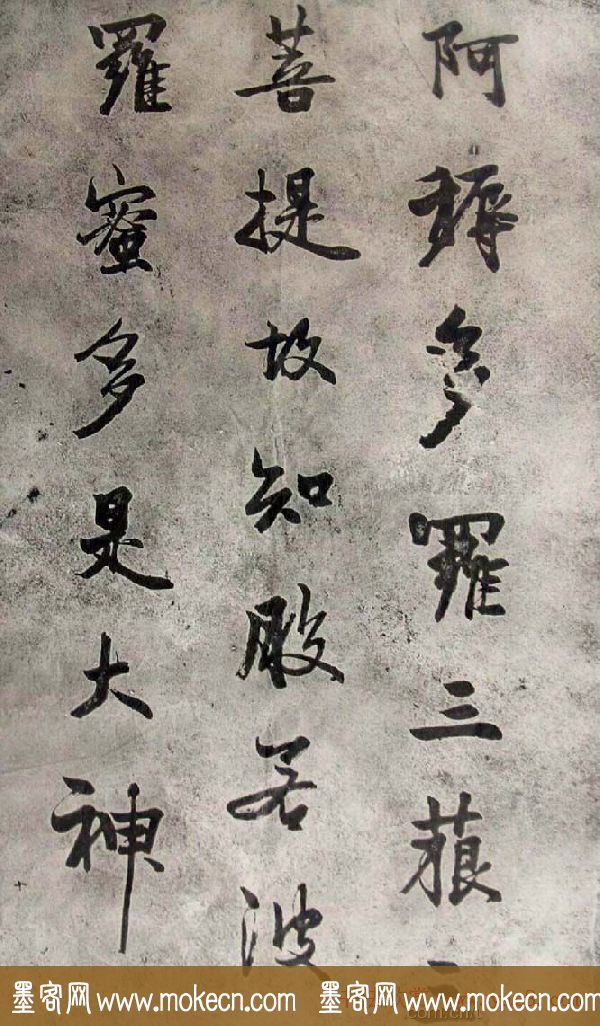 阿耨多羅三藐三
菩提故知般若波
羅蜜多是大神
墨客网 www.mokecn.com 墨客网 www.mokecn.com